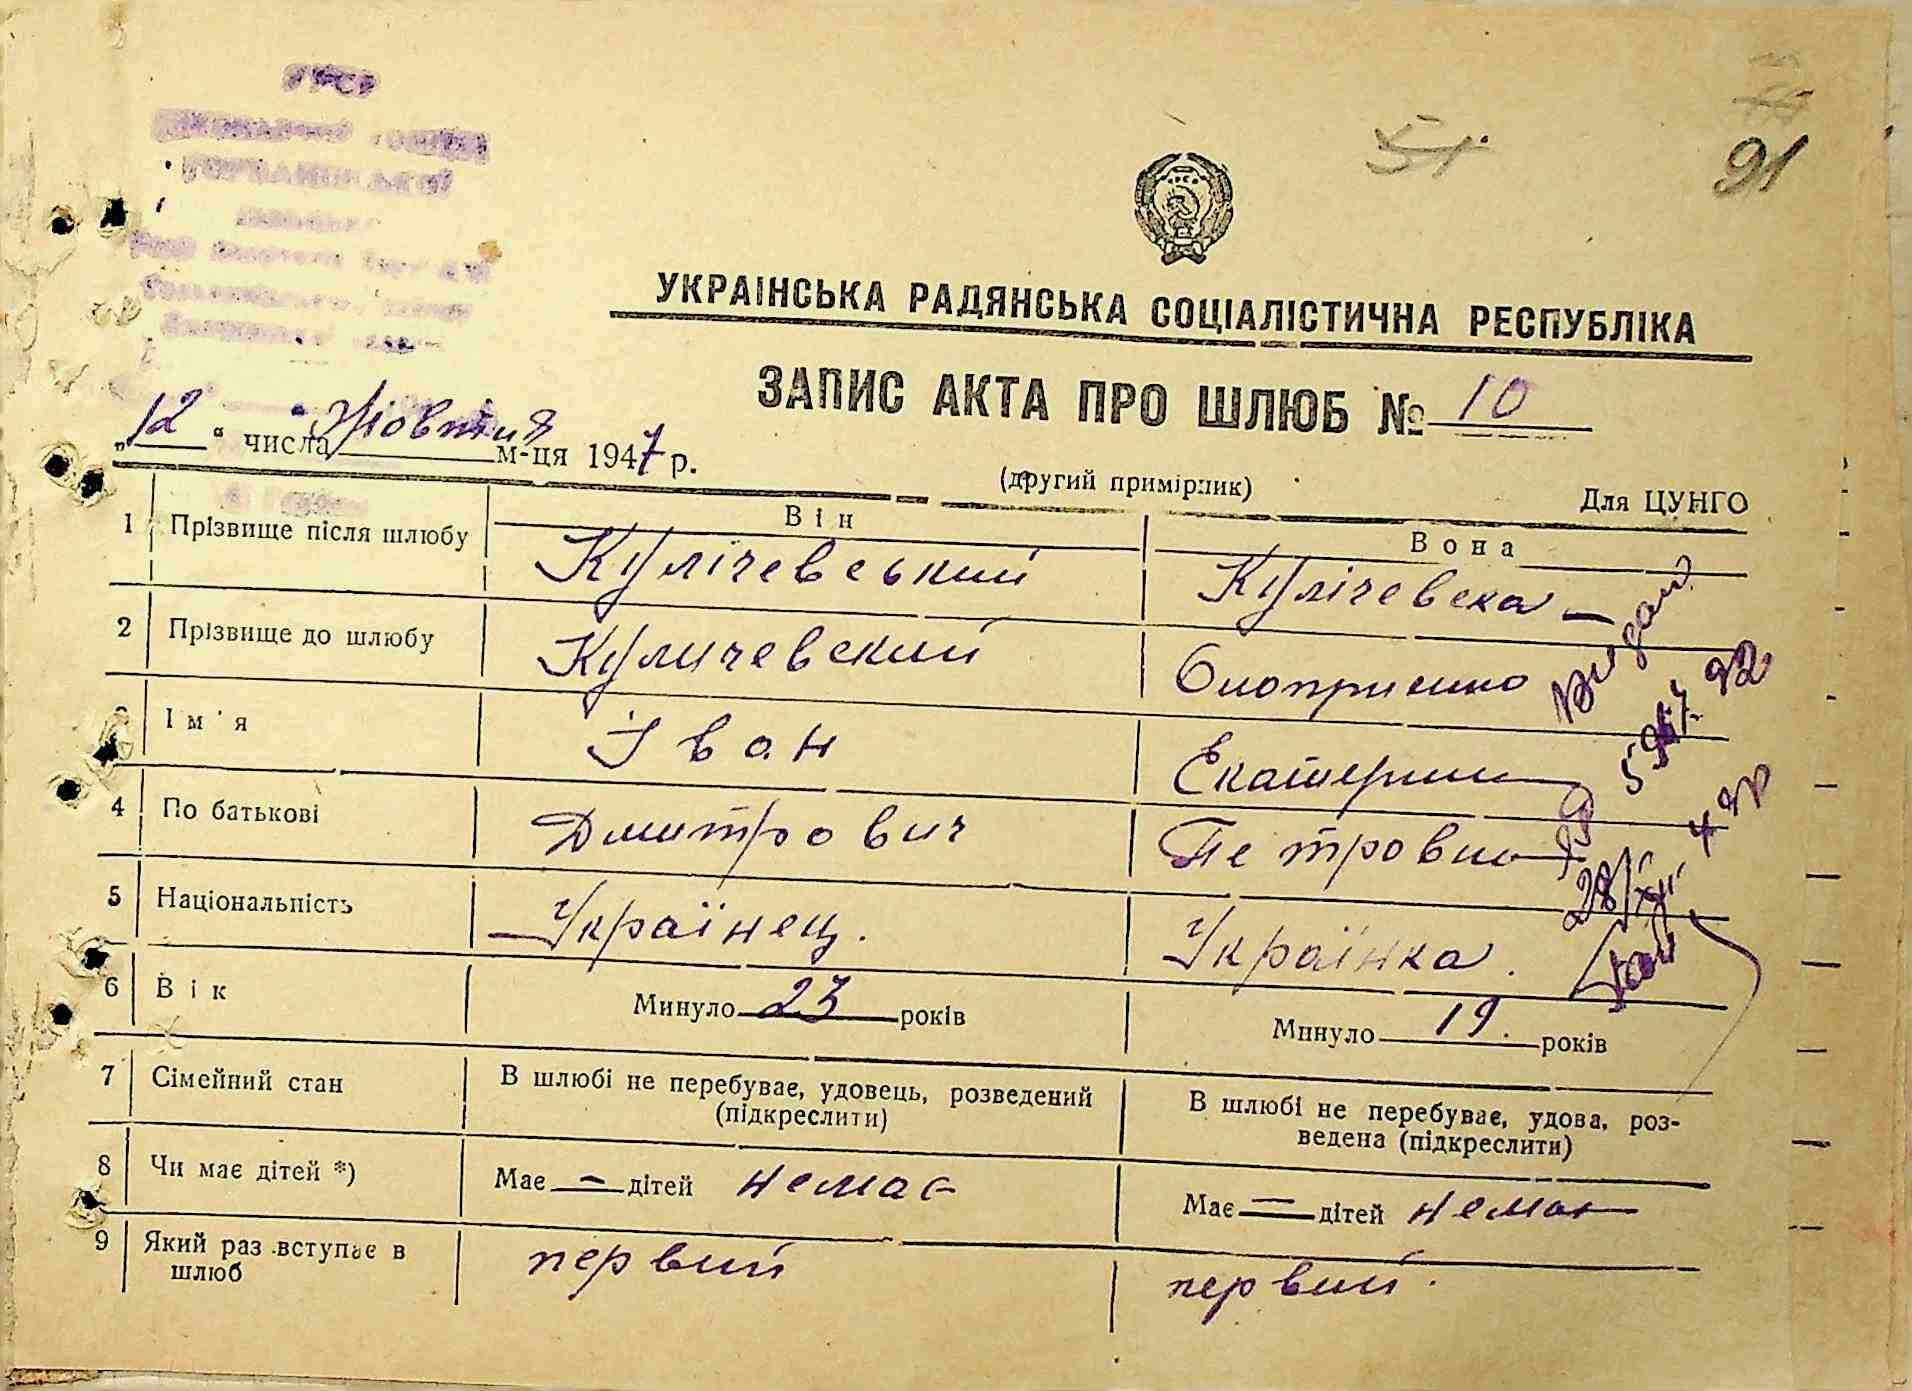 91
УКРАЇНСЬКА РАДЯНСЬКА СОЦІАЛІСТИЧНА РЕСПУБЛІКА
ЗАПИС АКТА ПРО ШЛЮБ № 10
„12“ числа Жовтня м-ця 1947 р.
(другий примірник)
Для ЦУНГО
Він Вона
1 Прізвище після шлюбу Кулічевський Кулічевска
2 Прізвище до шлюбу Куличевский Оноприенко
3 Ім'я Іван Екатерина
4 По батькові Дмитрович Петровна
5 Національність Українец. Українка.
6 Вік Минуло 23 років Минуло 19. років
7 Сімейний стан В шлюбі не перебуває, удовець, розведений В шлюбі не перебуває, удова, роз-
(підкреслити) ведена (підкреслити)
8 Чи має дітей *) Має — дітей немає Має — дітей немає
9 Який раз вступає в первий первий.
шлюб